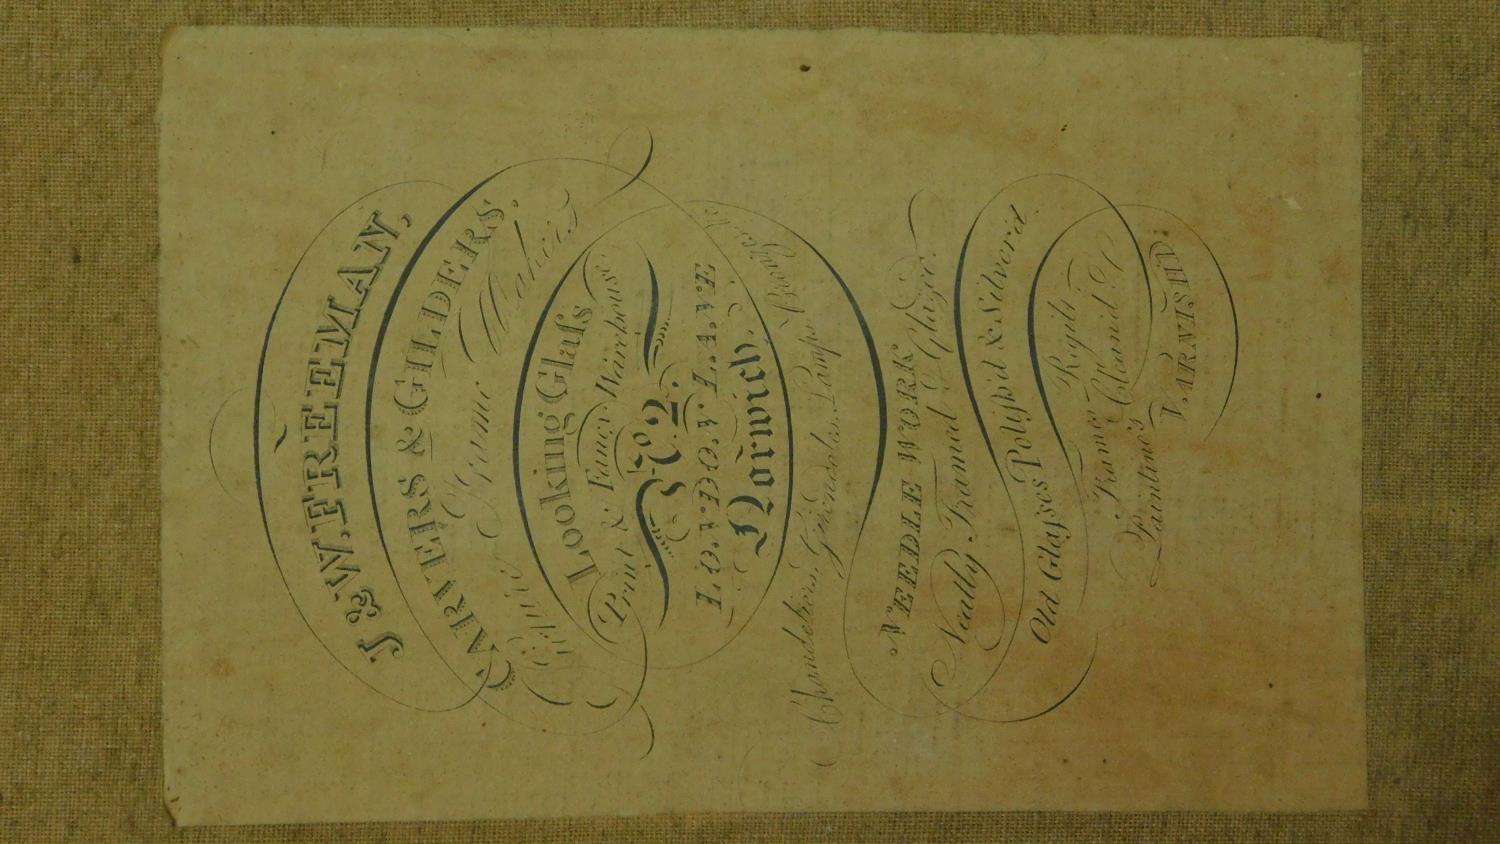 J & W. FREEMAN,
CARVERS & GILDERS.
Picture Frame Makers
Looking Glaſs
Print & Fancy Warehouse
No. 2.
LONDON LANE
Norwich.
Chandeliers, Girandoles, Lamps, Bronzes, &c.
NEEDLE WORK
Neatly Framed & Glazed.
Old Glaſses Poliſh'd & Silver'd
Frames Regilt
Paintings Clean'd &
VARNISH'D.